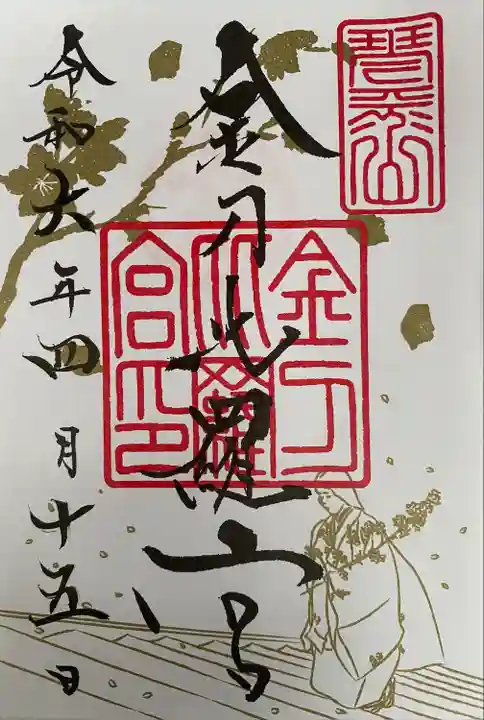 琴平山
金刀比羅宮
金刀比羅宮印
令和六年四月十五日